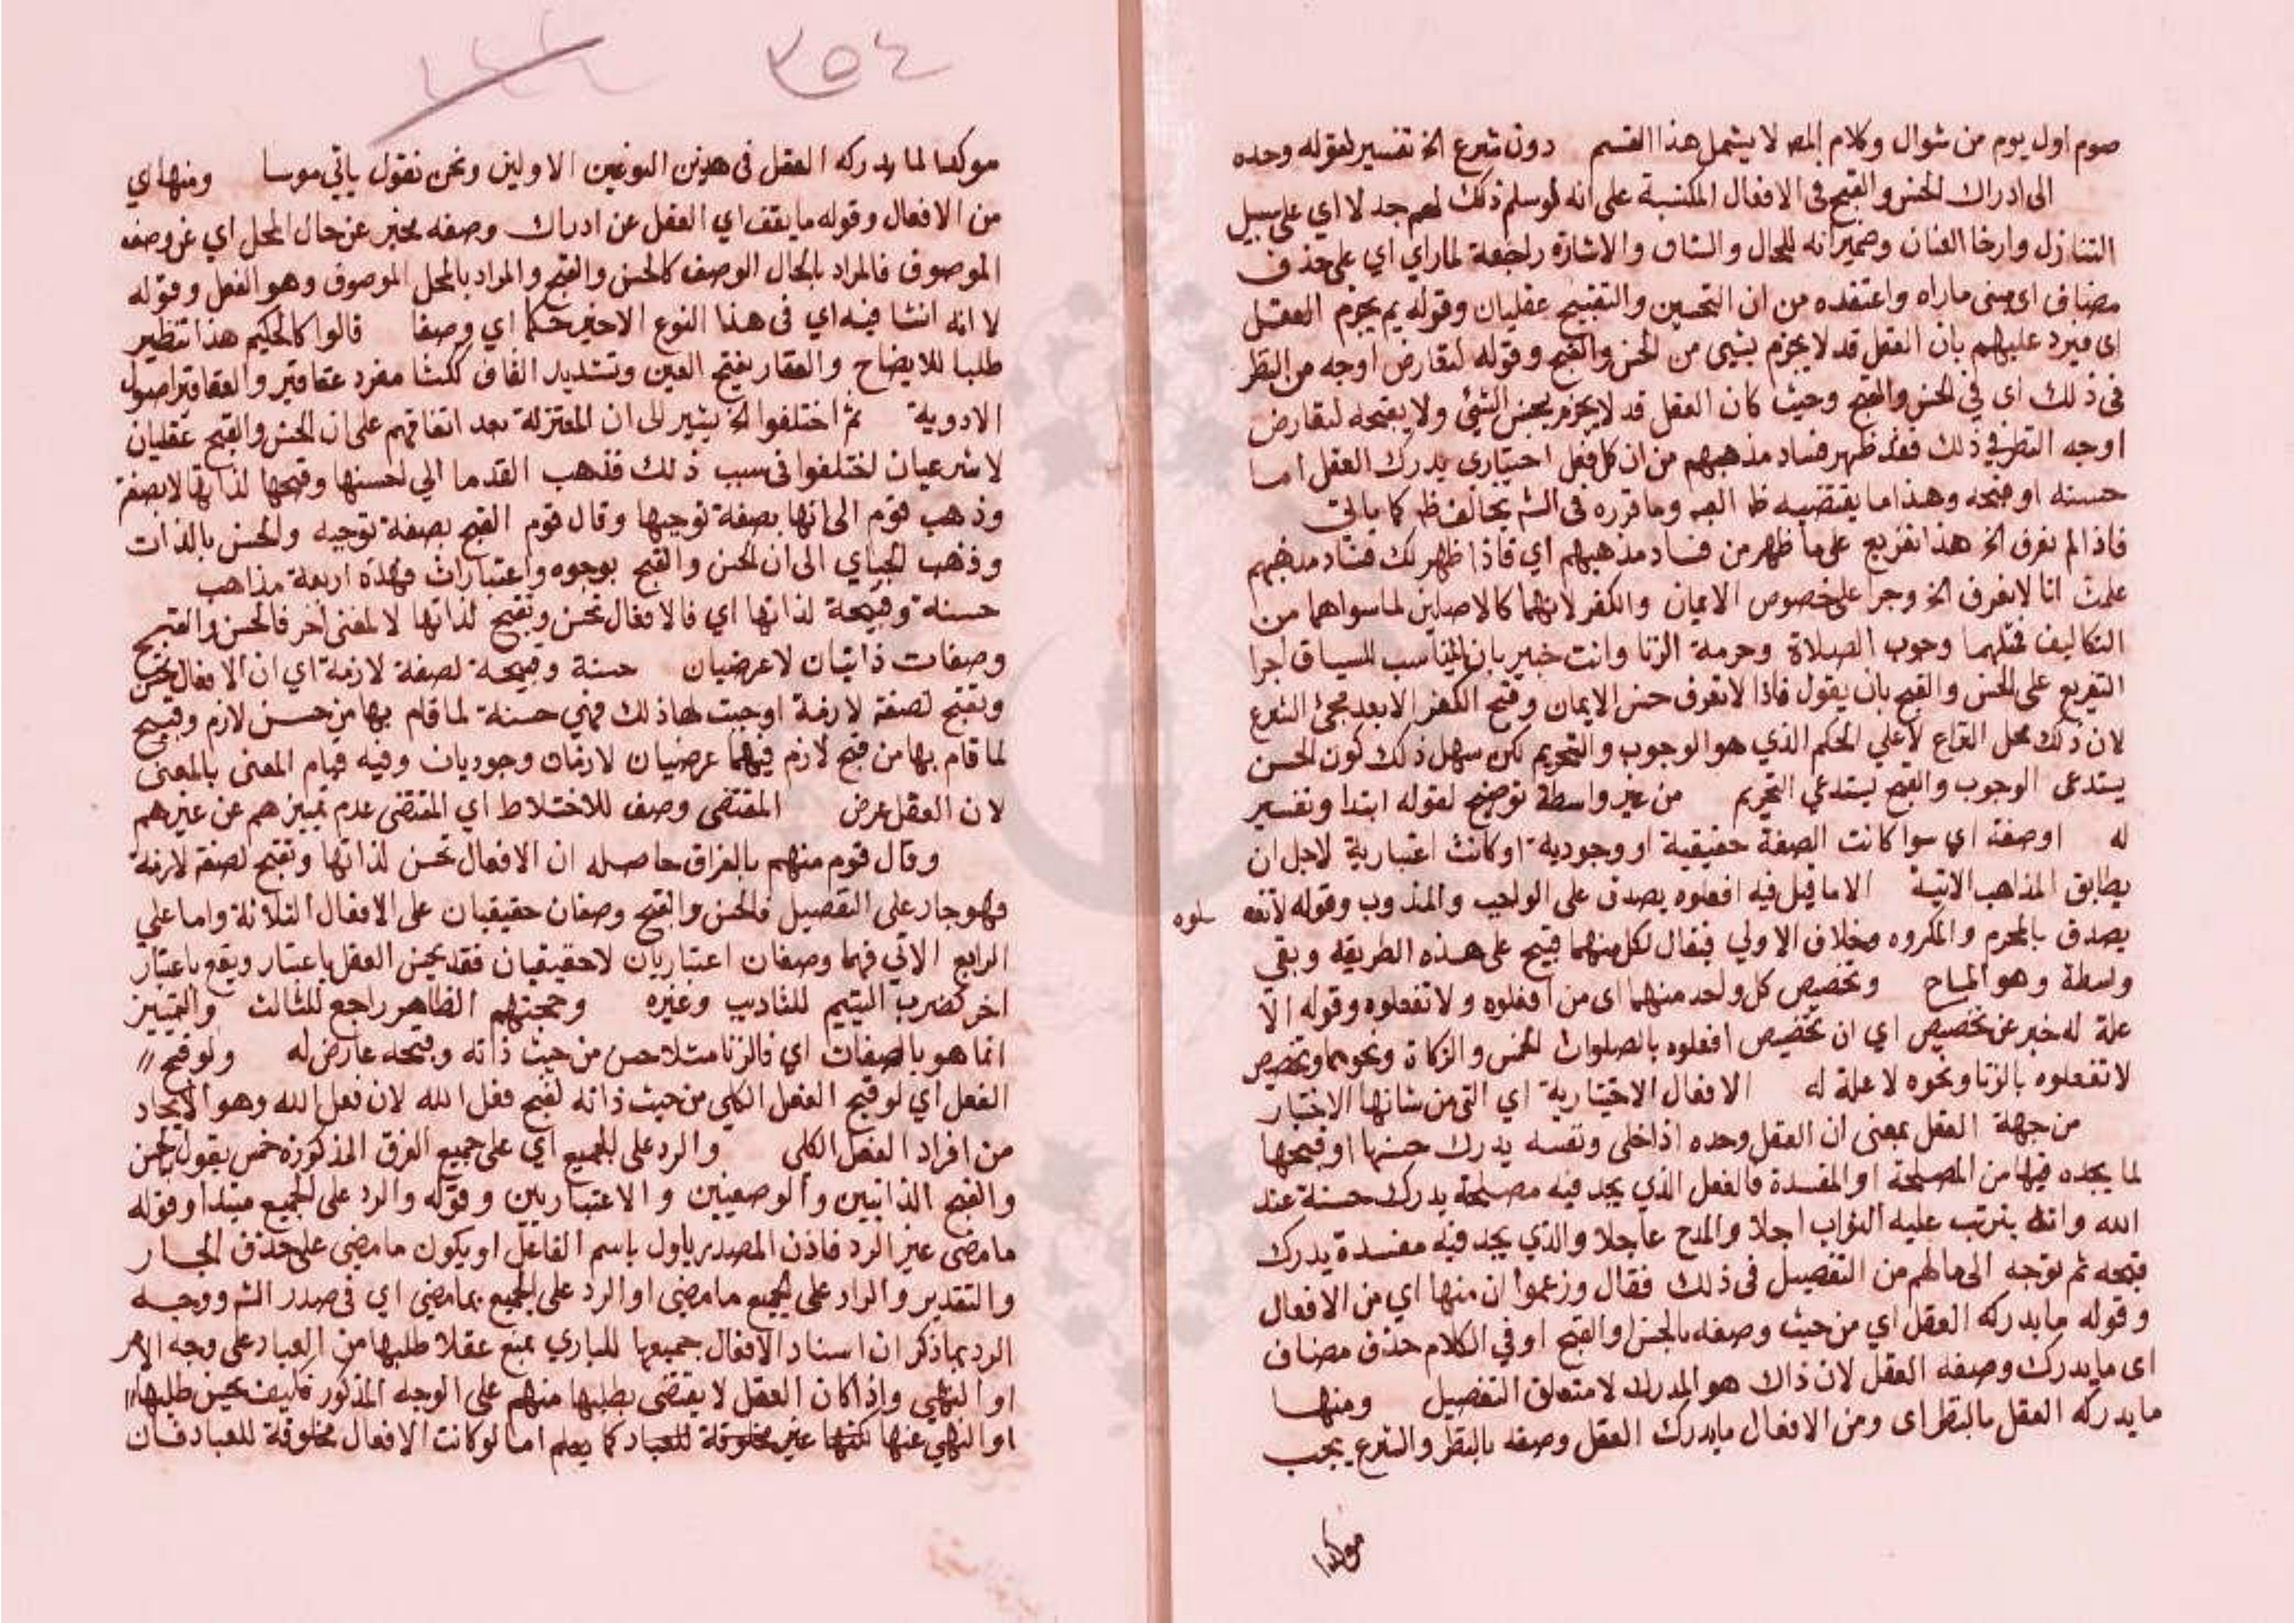 صوم اول يوم من شوال وكلام المص لا يشمل هذا القسم دون شرع الخ تفسير لقوله وحده
الى ادراك الحسن والقبح فى الافعال المكتسبة على انه لو سلم ذلك لهم جدلا اي على سبيل
التنازل وارخا العنان وضمير انه للحال والشان والاشارة راجعة لما راي اي على حذف
مضاف اى مبنى ما راه واعتقده من ان التحسين والتقبيح عقليان وقوله بم يجزم العقل
اى فيرد عليهم بان العقل قد لا يجزم بشيى من الحسن والقبح وقوله لتعارض اوجه من النظر
فى ذلك اى فى الحسن والقبح وحيث كان العقل قد لا يجزم بحسن الشئ ولا يقبحه لتعارض
اوجه النظر فى ذلك فقد ظهر فساد مذهبهم من ان كل فعل اختيارى يدرك العقل اما
حسنه او قبحه وهذا ما يقتضيه ظا العبر وما قرره فى الشم يخالف ظا كما ياتى
فاذا لم نعرف الخ هذا تفريع على ما ظهر من فساد مذهبهم اي فاذا ظهر لك فساد مذهبهم
علمت انا لا نعرف الخ وجرا على خصوص الايمان والكفر لانهما كالاصلين لما سواهما من
التكاليف فمثلهما وجوب الصلاة وحرمة الزنا وانت خبير بان المناسب للسياق اجرا
التفريع على الحسن والقبح بان يقول فاذا لا نعرف حسن الايمان وقبح الكفر الا بعد مجئ الشرع
لان ذلك محل النزاع لا على الحكم الذي هو الوجوب والتحريم لكن سهل ذلك كون الحسن
يستدعى الوجوب والقبح يستدعي التحريم من غير واسطة توضيح لقوله ابتدا وتفسير
له او صفة اي سوا كانت الصفة حقيقية او وجودية او كانت اعتبارية لاجل ان
يطابق المذاهب الاتية الا ما قيل فيه افعلوه يصدق على الواجب والمندوب وقوله لا تفعلوه
يصدق بالمحرم والمكروه وخلاف الاولي فيقال لكل منهما قبيح على هذه الطريقة وبقي
واسطة وهو المباح وتخصيص كل واحد منهما اى من افعلوه ولا تفعلوه وقوله الا
علة له خبر عن تخصيص اي ان تخصيص افعلوه بالصلوات الخمس والزكاة ونحوهما وتخصيص
لا تفعلوه بالزنا ونحوه لا علة له الافعال الاختيارية اي التى من شانها الاختيار
من جهة العقل بمعنى ان العقل وحده اذا خلى ونفسه يدرك حسنها او قبحها
لما يجده فيها من المصلحة او المفسدة فالفعل الذي يجد فيه مصلحة يدرك حسنة عند
الله وانه يترتب عليه الثواب اجلا والمدح عاجلا والذي يجد فيه مفسدة يدرك
قبحه ثم توجه الى ما لهم من التفصيل فى ذلك فقال وزعموا ان منها اي من الافعال
وقوله ما يدركه العقل اي من حيث وصفه بالحسن او القبح او في الكلام حذف مضاف
اى ما يدرك وصفه العقل لان ذاك هو المدرك لا متعلق التفصيل ومنها
ما يدركه العقل بالنظر اى ومن الافعال ما يدرك العقل وصفه بالنظر والشرع يجب
موكدا
٣٥٤
موكدا لما يدركه العقل فى هذين النوعين الاولين ونحن نقول ياتي موسا ومنها اي
من الافعال وقوله ما يقف اي العقل عن ادراك وصفه مخبر عن حال المحل اي عن وصف
الموصوف فالمراد بالحال الوصف كالحسن والقبح والمراد بالمحل الموصوف وهو الفعل وقوله
لا انه انشا فيه اي فى هذا النوع الاخير حكما اي وصفا قالوا كالحكيم هذا تنظير
طلبا للايضاح والعقار بفتح العين وتشديد القاف ككشا مفرد عقاقير والعقاقير اصول
الادوية ثم اختلفوا الخ يشير الى ان المعتزلة بعد اتفاقهم على ان الحسن والقبح عقليان
لا شرعيان اختلفوا فى سبب ذلك فذهب القدما الي حسنها وقبحها لذاتها لا بصفة
وذهب قوم الى انها بصفة توجبها وقال قوم القبح بصفة توجبه والحسن بالذات
وذهب الجباي الى ان الحسن والقبح بوجوه واعتبارات فهذه اربعة مذاهب
حسنة وقبيحة لذاتها اي فالافعال تحسن وتقبح لذاتها لا لمعنى اخر فالحسن والقبح
وصفات ذاتيان لا عرضيان حسنة وقبيحة لصفة لازمة اي ان الافعال تحسن
وتقبح لصفة لازمة اوجبت لها ذلك فهي حسنة لما قام بها من حسن لازم وقبيح
لما قام بها من قبح لازم فيهما عرضيان لازمان وجوديان وفيه قيام المعنى بالمعنى
لان العقل عرض المقتضى وصف للاختلاط اي المقتضى عدم تمييزهم عن غيرهم
وقال قوم منهم بالفراق حاصله ان الافعال تحسن لذاتها وتقبح لصفة لازمة
فهو جار على التفصيل فالحسن والقبح وصفان حقيقيان على الافعال الثلاثة واما علي
الرابع الاتي فهما وصفان اعتباريان لا حقيقيان فقد يحسن العقل باعتبار ويقع باعتبار
اخر كضرب اليتيم للتاديب وغيره وحجتهم الظاهر راجع للثالث والتمييز
انما هو بالصفات اي فالزنا مثلا حسن من حيث ذاته وقبحه عارض له ولو قبح
الفعل اي لو قبح الفعل الكلي من حيث ذاته لقبح فعل الله لان فعل الله وهو الايجاد
من افراد الفعل الكلى والرد على الجميع اي على جميع الفرق المذكورة خمس بقول الحسن
والقبح الذاتيين والوصفيين والاعتباريين وقوله والرد على الجميع مبتدا وقوله
ما مضى عين الرد فاذن المصدر ياول باسم الفاعل او يكون ما مضى على حذف الجار
والتقدير والراد على الجميع ما مضى او الرد على الجميع بما مضى اي فى صدر الشم ووجه
الرد بما ذكر ان اسناد الافعال جميعها للباري يمنع عقلا طلبها من العباد على وجه الامر
او النهي واذا كان العقل لا يقتضى بطلبها منهم على الوجه المذكور فكيف يحسن طلبها
او النهي عنها لكنها غير مخلوقة للعباد كما يعلم اما لو كانت الافعال مخلوقة للعباد فان